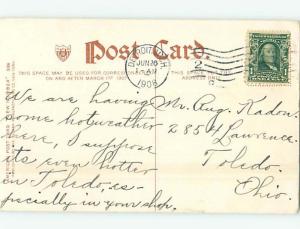 Post Card.
THIS SPACE MAY BE USED FOR CORRESPONDENCE
ON AND AFTER MARCH 1ST 1907
DETROIT, MICH.
JUN 26
1908
We are having
some hot weather
here, I suppose
its even hotter
in Toledo, es-
pecially in your shop.
Mr. Aug. Kadow.
2854 Lawrence.
Toledo.
Ohio.